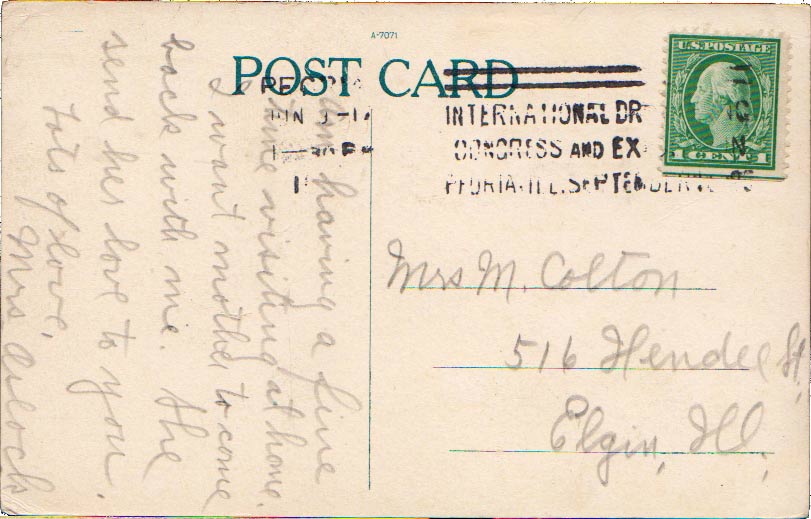 A-7071
POST CARD
U.S. POSTAGE
1 CENT 1
INTERNATIONAL DR
CONGRESS AND EX
PEORIA, ILL, SEPTEMBER
am having a fine
time visiting at home.
I want mother to come
back with me. She
send her love to you.
Lots of love,
Mrs
Mrs M. Colton
516 Hendee St,
Elgin, Ill,